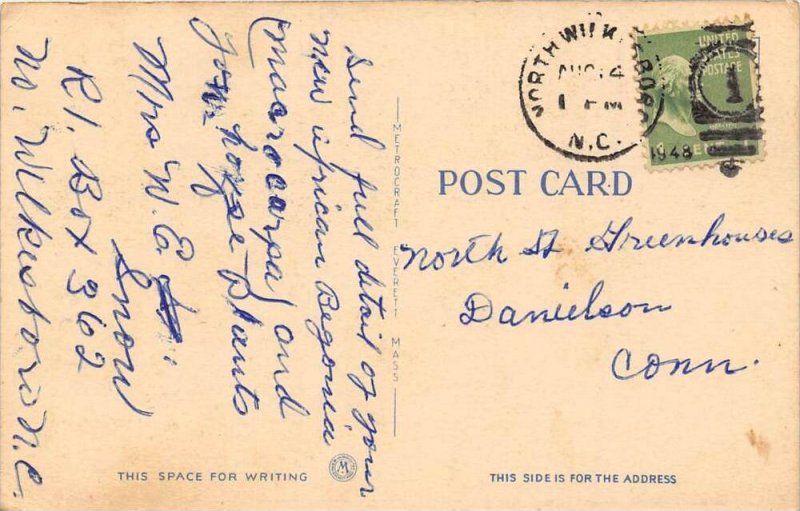 Send full detail of your
new African Begonia
(macrocarpa) and
house Plants
Mrs W. E.
Snow
R1. Box 362
No. Wilkesboro N.C.
THIS SPACE FOR WRITING
METROCRAFT EVERETT MASS
M
NORTH WILKESBORO
AUG 14
1 PM
N.C.
1948
UNITED
STATES
POSTAGE
1
POST CARD
North St Greenhouses
Danielson
Conn.
THIS SIDE IS FOR THE ADDRESS